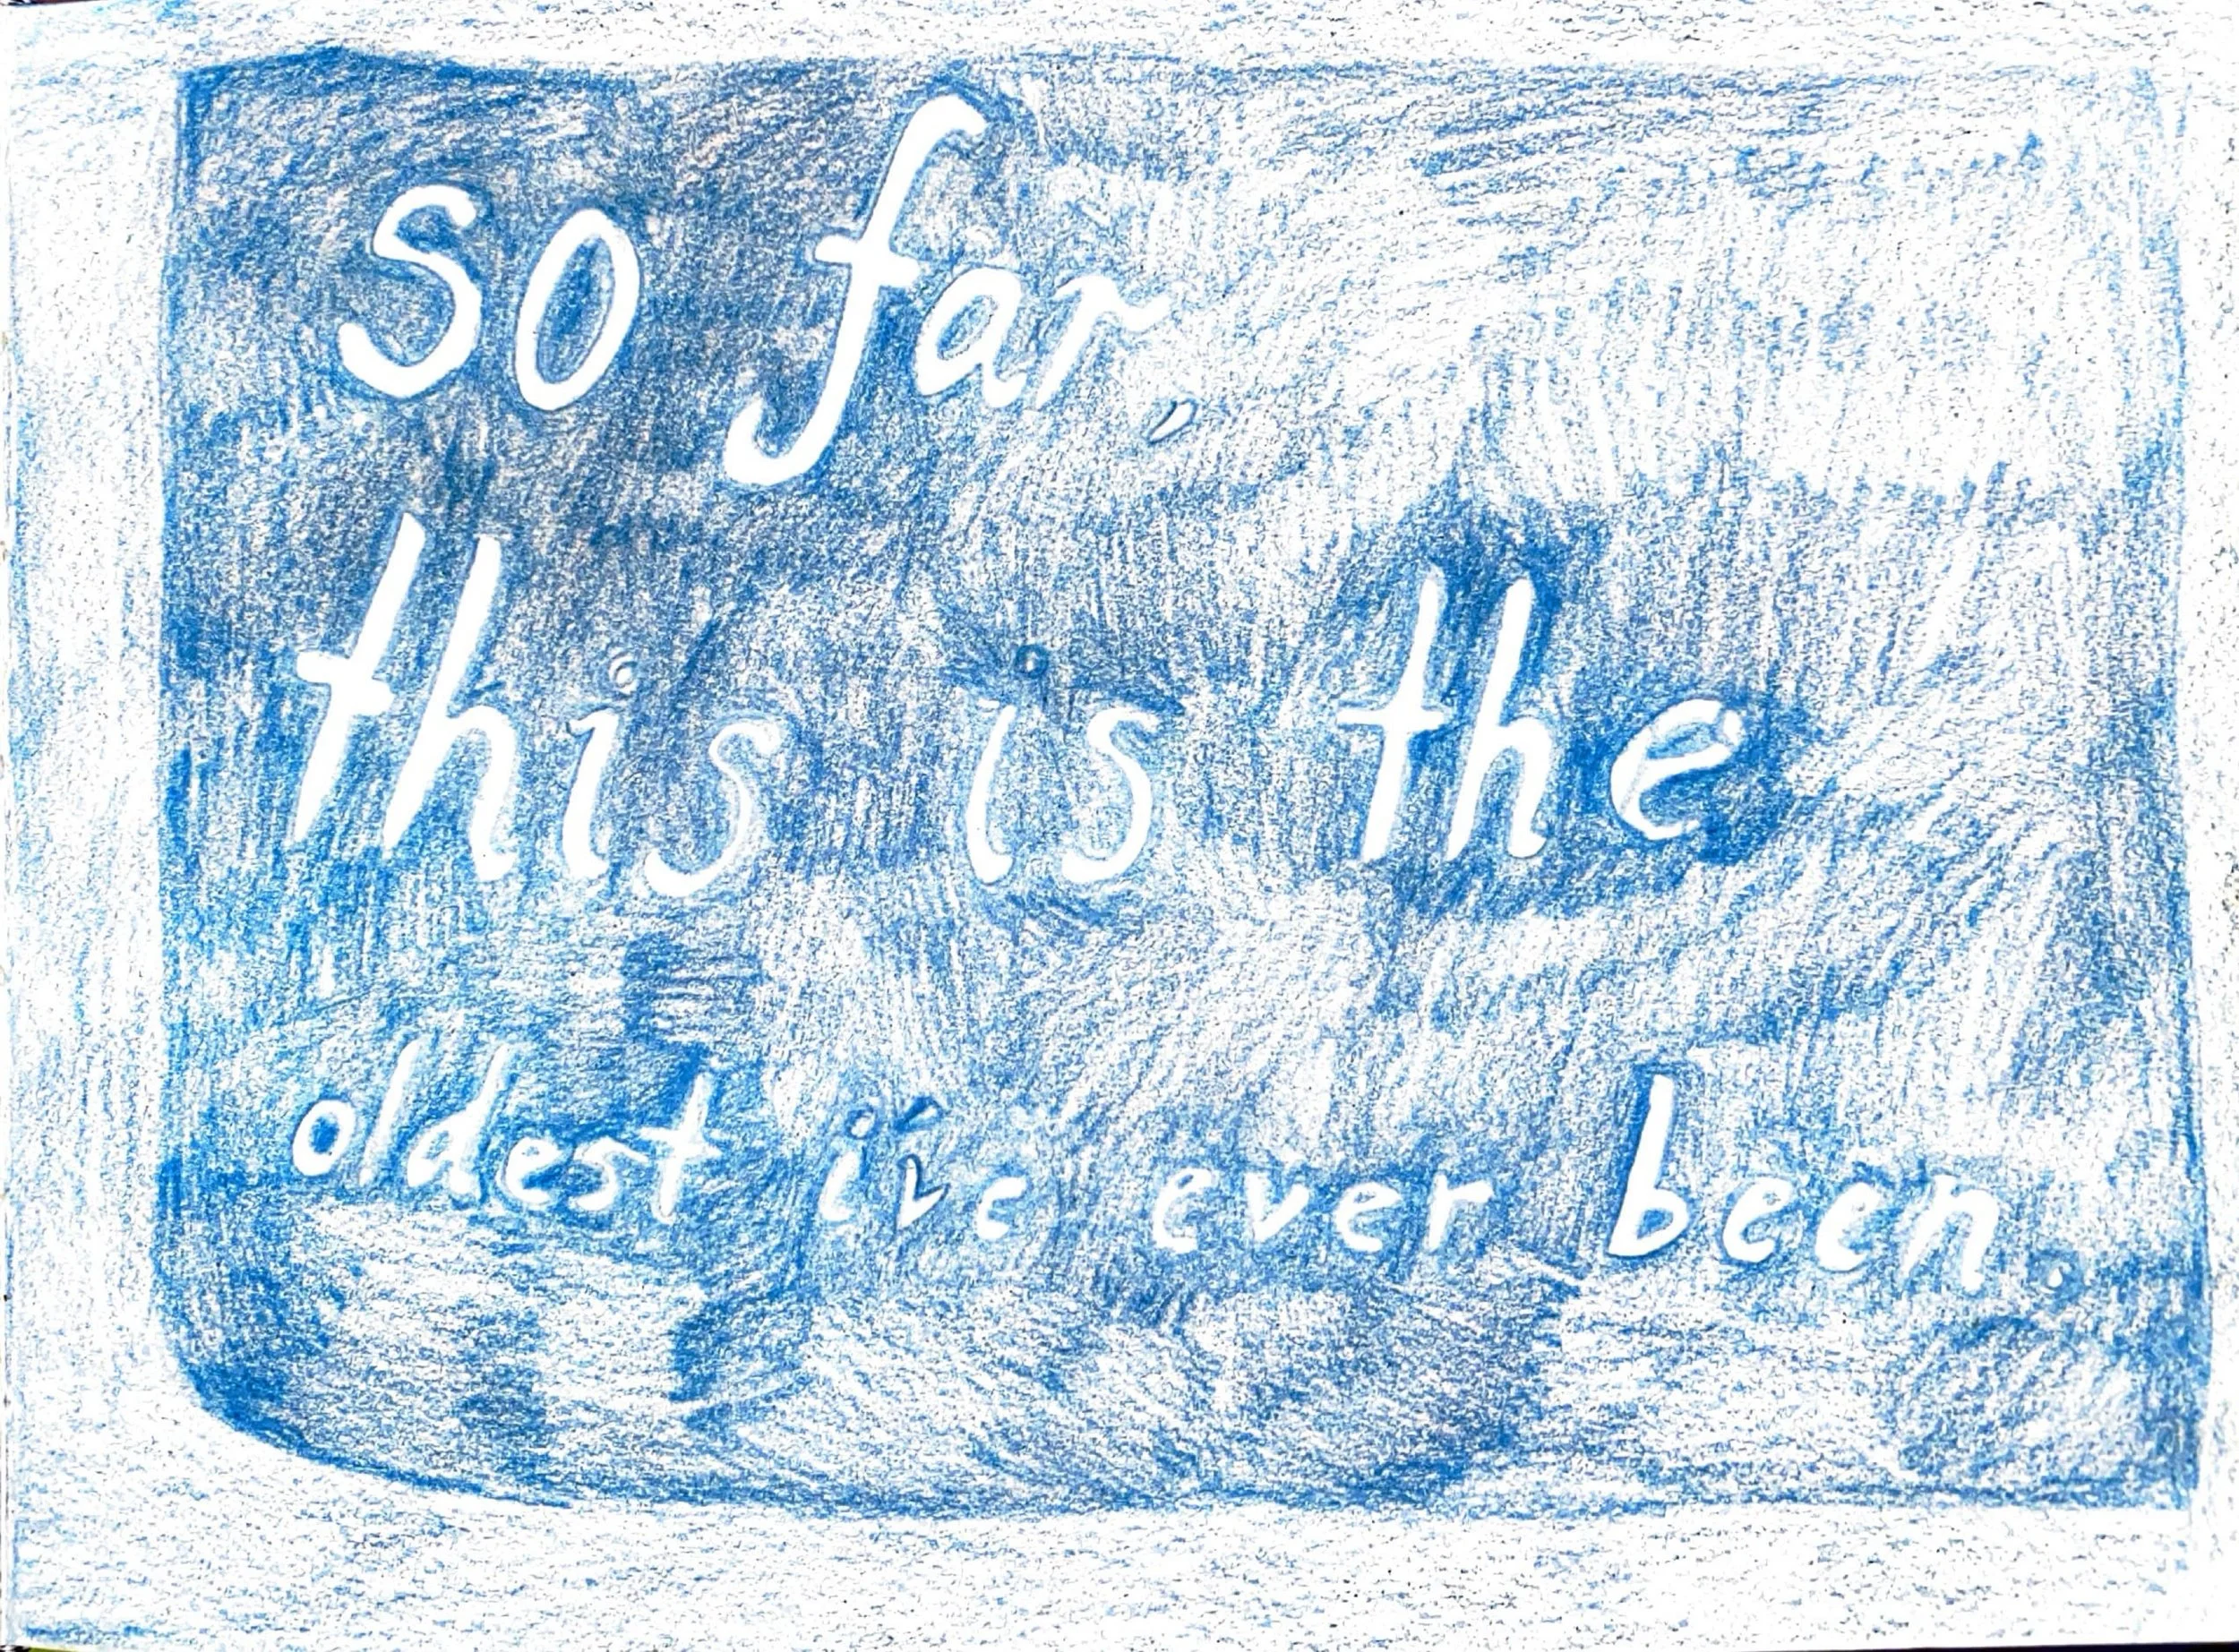 so far,
this is the
oldest i've ever been.